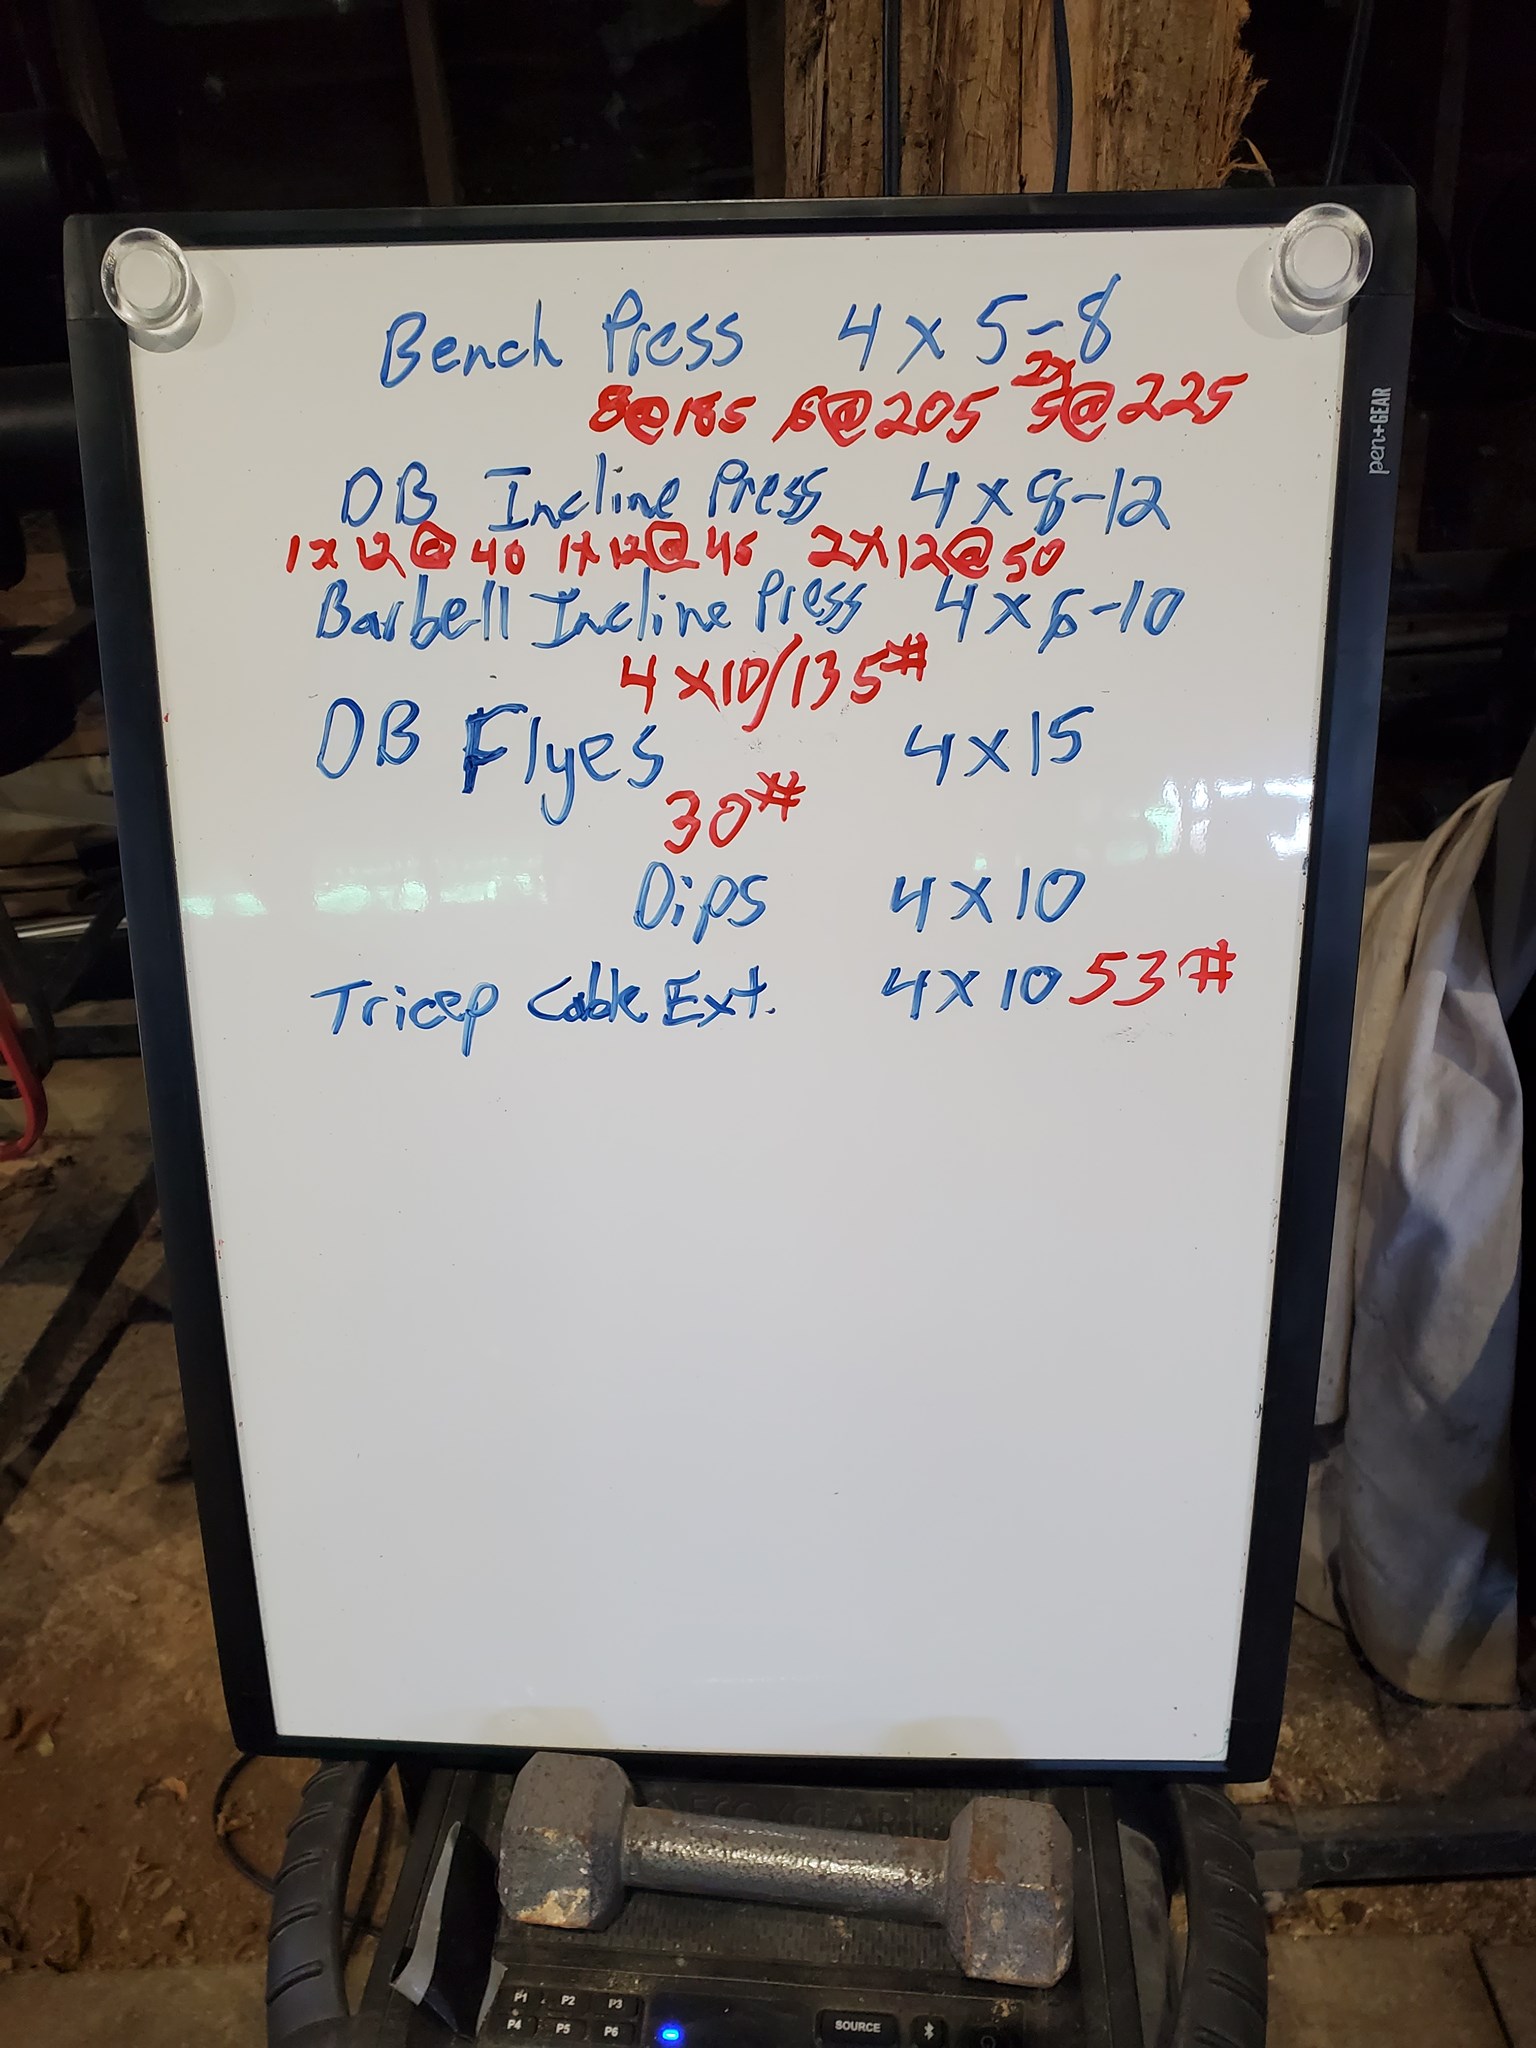 Bench Press 4 x 5-8
2x
8@185 6@205 5@225
DB Incline Press 4 x 8-12
1x12@40 1x12@45 2x12@50
Barbell Incline Press 4 x 6-10
4 x10/135#
DB Flyes 4 x 15
30#
Dips 4 x 10
Tricep Cable Ext. 4 x 10 53#
pen+GEAR
P1 P2 P3
P4 P5 P6
SOURCE